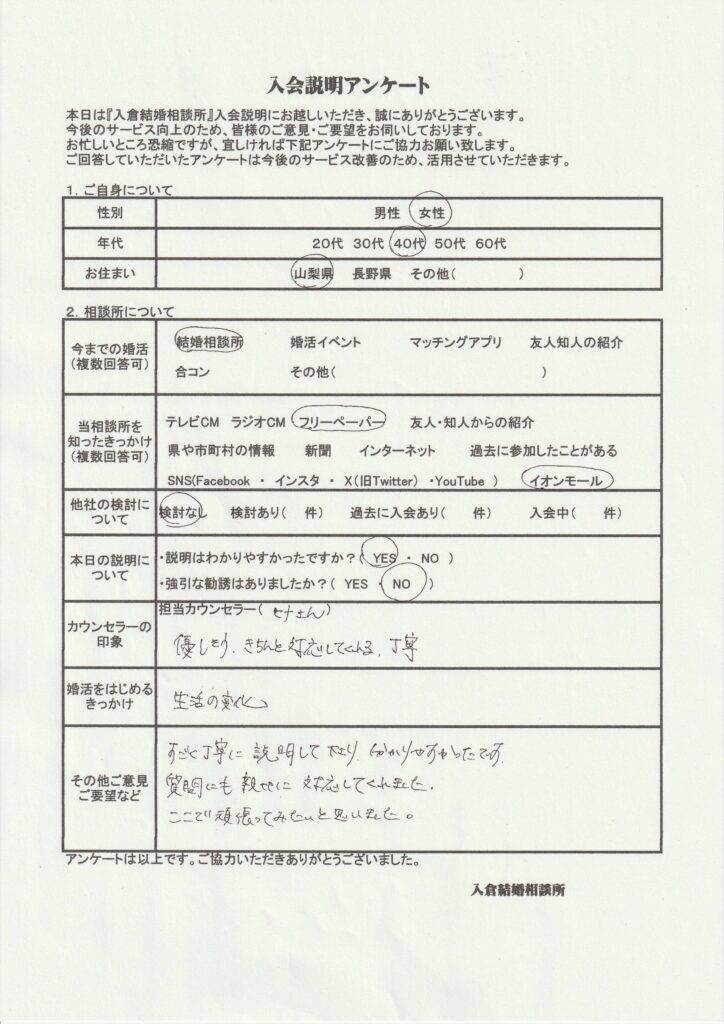 入会説明アンケート
本日は『入倉結婚相談所』入会説明にお越しいただき、誠にありがとうございます。
今後のサービス向上のため、皆様のご意見・ご要望をお伺いしております。
お忙しいところ恐縮ですが、宜しければ下記アンケートにご協力お願い致します。
ご回答していただいたアンケートは今後のサービス改善のため、活用させていただきます。
1. ご自身について
性別 男性 女性
年代 20代 30代 40代 50代 60代
お住まい 山梨県 長野県 その他( )
2. 相談所について
今までの婚活 (複数回答可) 結婚相談所 婚活イベント マッチングアプリ 友人知人の紹介
合コン その他( )
当相談所を 知ったきっかけ (複数回答可) テレビCM ラジオCM フリーペーパー 友人・知人からの紹介
県や市町村の情報 新聞 インターネット 過去に参加したことがある
SNS(Facebook ・ インスタ ・ X(旧Twitter) ・YouTube ) イオンモール
他社の検討に ついて 検討なし 検討あり( 件) 過去に入会あり( 件) 入会中( 件)
本日の説明に ついて ・説明はわかりやすかったですか?( YES ・ NO )
・強引な勧誘はありましたか?( YES ・ NO )
カウンセラーの 印象 担当カウンセラー( さん)
優しそう、きちんと対応してくれる、丁寧
婚活をはじめる きっかけ 生活の変化
その他ご意見 ご要望など すごく丁寧に説明して下さり、分かりやすかったです。
質問にも親切に対応してくれました。
ここで頑張ってみたいと思いました。
アンケートは以上です。ご協力いただきありがとうございました。
入倉結婚相談所